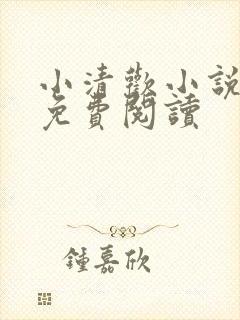 小清歡小說
免費閱讀
鍾嘉欣